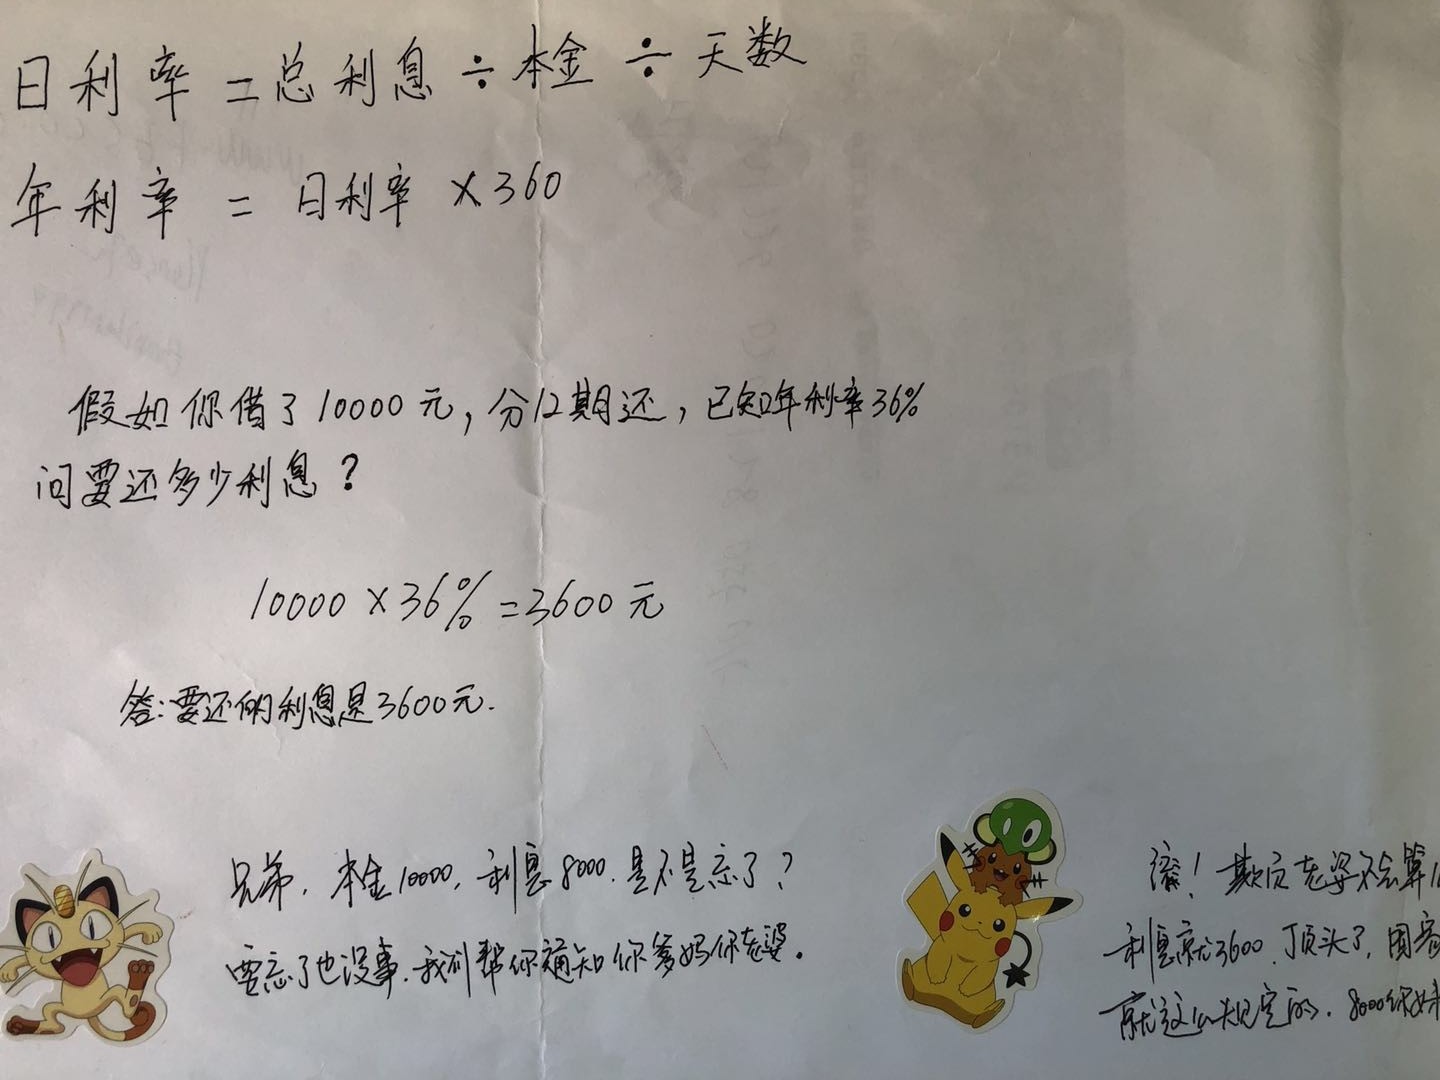 日利率=总利息÷本金÷天数
年利率=日利率×360
假如你借了10000元,分12期还,已知年利率36%
问要还多少利息?
10000×36%=3600元
答:要还的利息是3600元.
兄弟,本金10000,利息8000.是不是忘了?
要忘了也没事.我们帮你通知你爹妈你老婆.
滚!欺负老婆不会算
利息就3600.顶头了,国家
就这么规定的.8000你妹